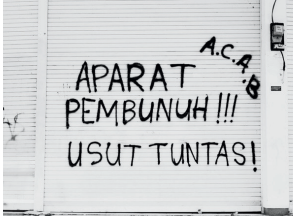 A.C.A.B
APARAT
PEMBUNUH!!!
USUT TUNTAS!